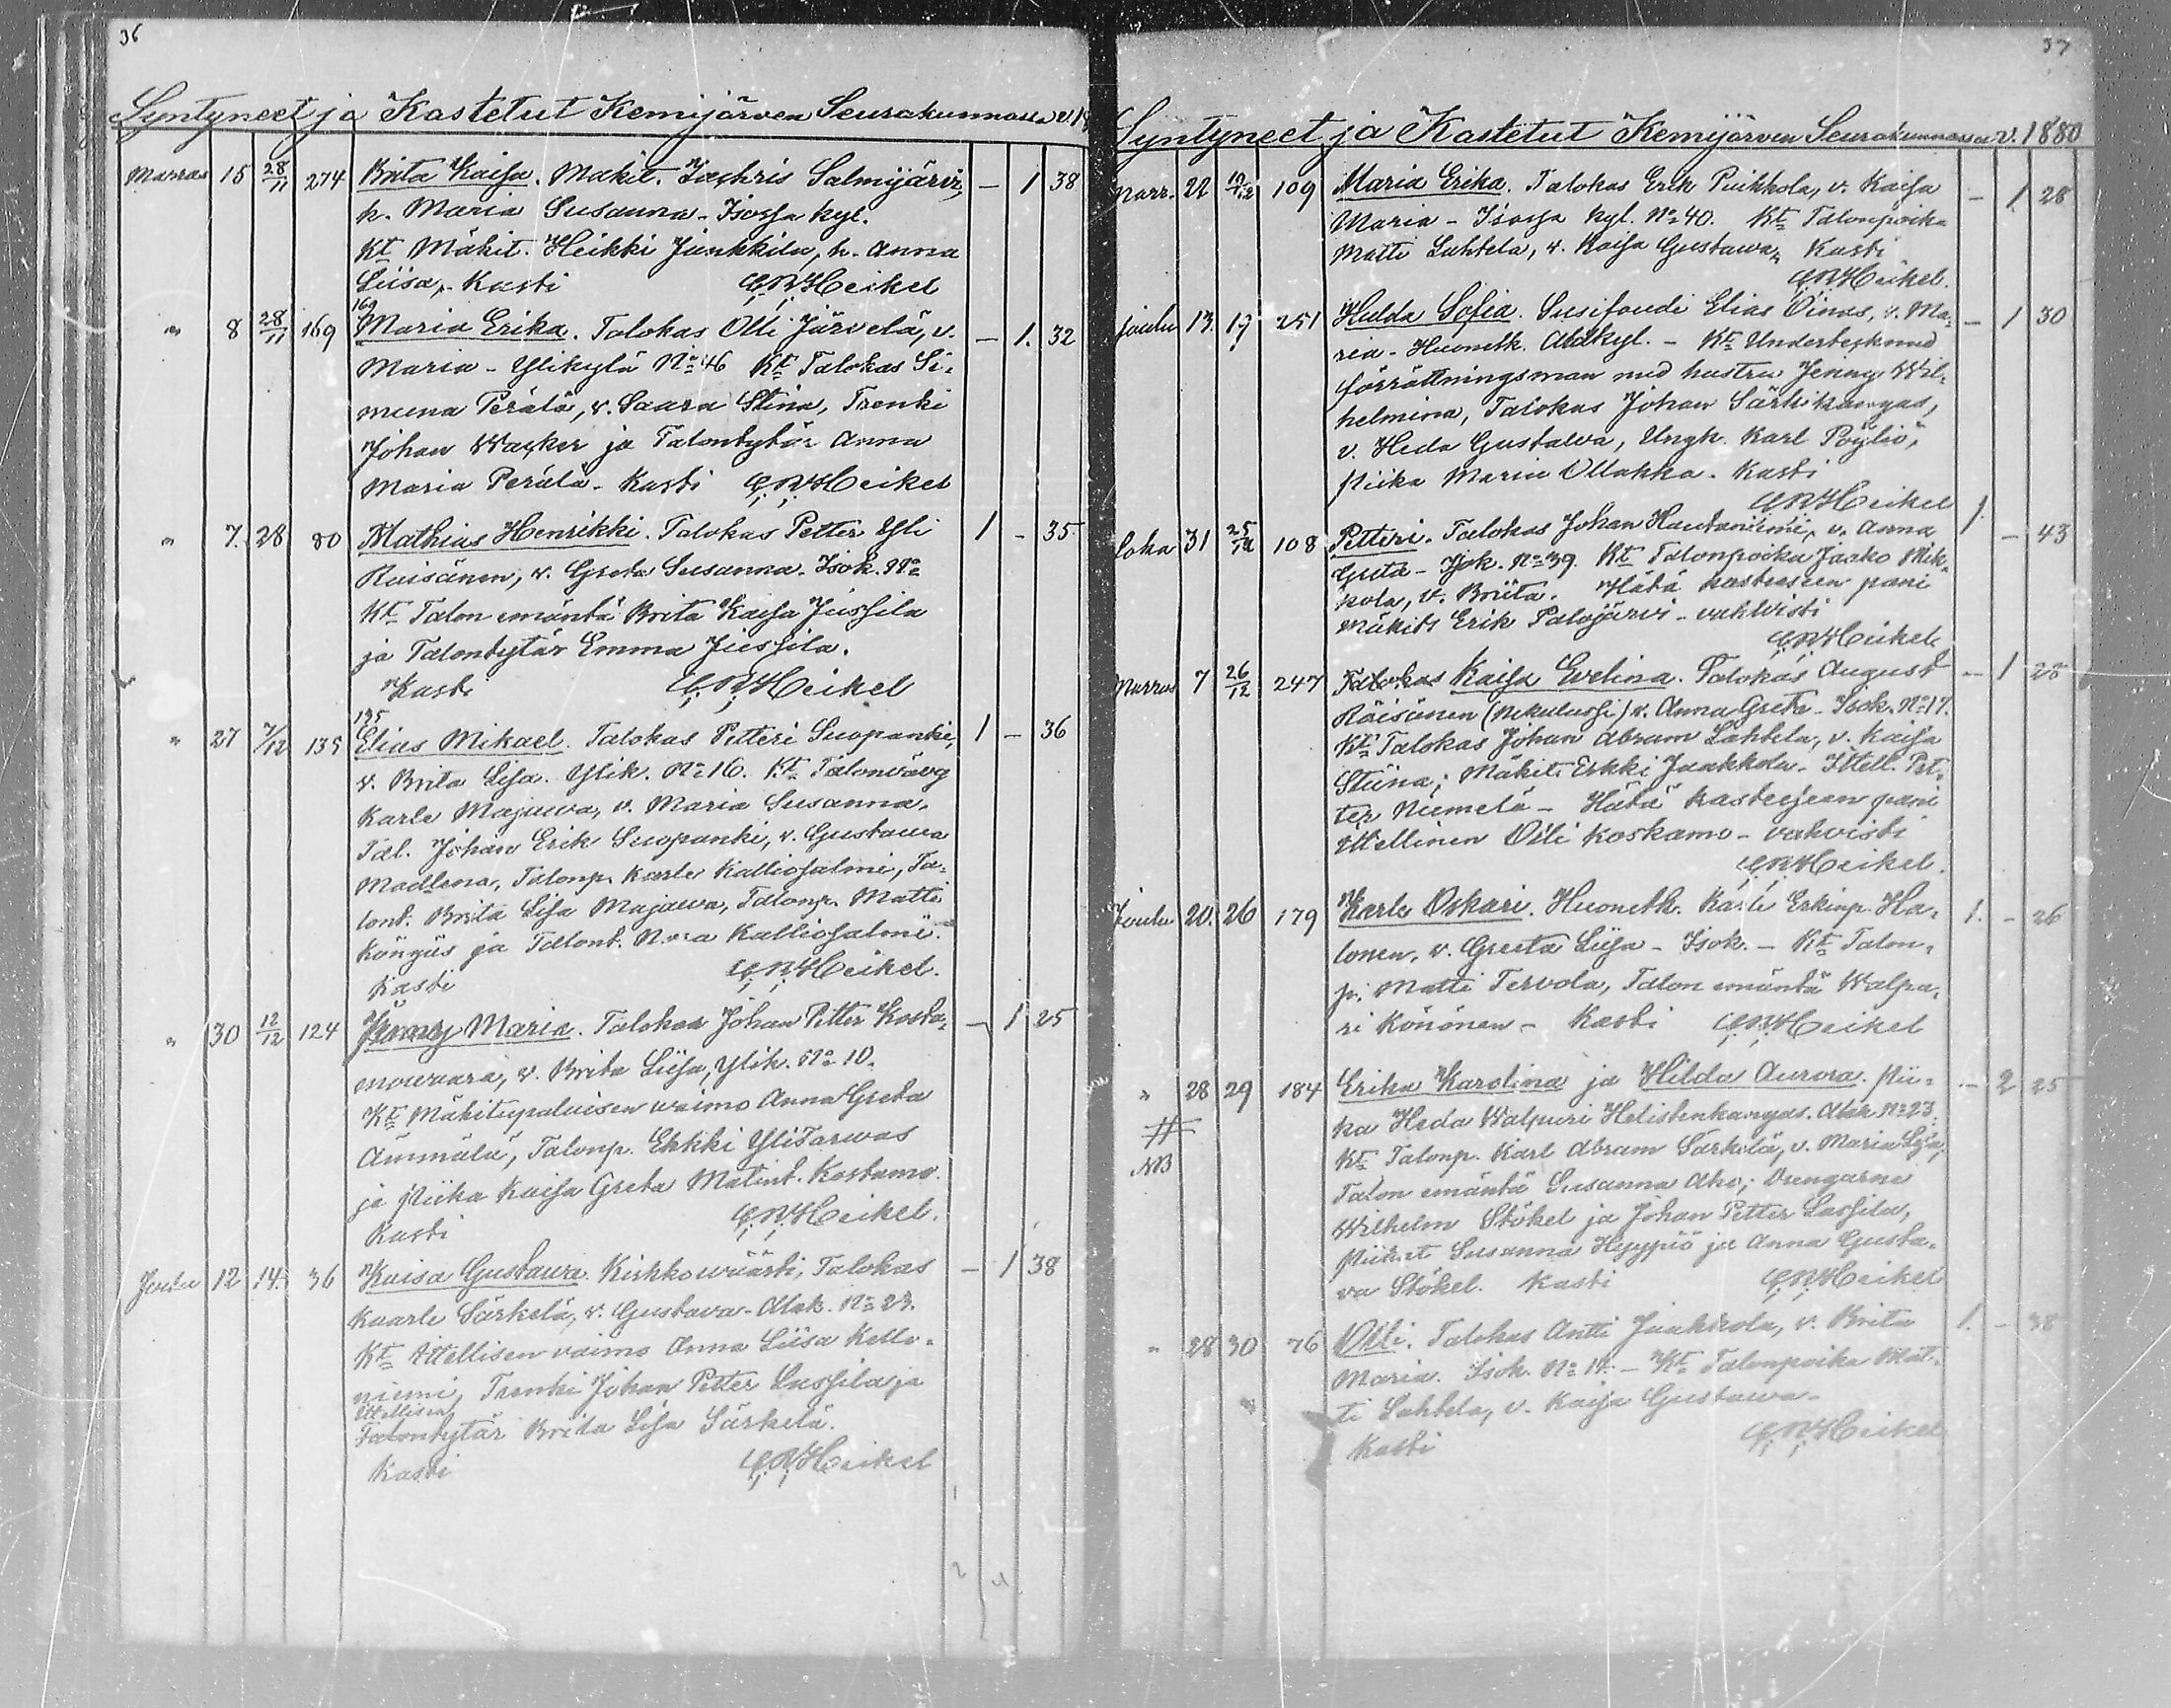 36
Syntyneet ja Kastetut Kemijärven Seurakunnassa v. 18
Marras 15 28/11 274 Brita Kaisa. Mäkit. Zachris Salmijärvi, - 1 38
h. Maria Susanna - Isossa kyl.
Kt Mäkit. Heikki Junkkila, h. Anna
Liisa, - Kasti C.R.Heikel
169
" 8 28/11 169 Maria Erika. Talokas Olli Järvelä, v. - 1. 32
Maria - Ylikylä No 46 Kt Talokas Si-
muna Perälä, v. Saara Stina, Trenki
Johan Wacker ja Talontytär Anna
Maria Perälä - Kasti C.R.Heikel
" 7. 28 80 Mathias Henrikki. Talokas Petter Yli 1 - 35
Räisänen, v. Greta Susanna - Isok. No
Kt Talon emäntä Brita Kaisa Jussila
ja Talontytär Emma Jussila.
Kasti C.R.Heikel
135
" 27 7/12 135 Elias Mikael. Talokas Petteri Suopanki, 1 - 36
v. Brita Lisa. Ylik. No 16. Kt Talonvävy
Karle Majawa, v. Maria Susanna,
Tal. Johan Erik Suopanki, v. Gustawa
Madlena, Talonp. Karle Kalliosalmi, Ta-
lont. Brita Lisa Majawa, Talonp. Matti
Köngäs ja Talont. Kalliosalmi.
Kasti C.R.Heikel.
" 30 12/12 124 Jenny Maria. Talokas Johan Petter Kosta- - 1 25
mowaara, v. Brita Liisa, Ylik. No 10.
Kt Mäkitupalaisen waimo Anna Greta
Ämmälä, Talonp. Erkki YliTarwas
ja Piika Kaisa Greta Matint. Kostamo.
Kasti C.R.Heikel.
Joulu 12 14. 36 Kaisa Gustawa. Kirkkowäärti, Talokas - 1 38
Kaarle Särkelä, v. Gustava - Alak. No 23.
Kt Ittellisen vaimo Anna Liisa Kello-
niemi, Trenki Johan Petter Lassila ja
Ittellisen
Talontytär Brita Lisa Särkelä.
Kasti C.R.Heikel
37
Syntyneet ja Kastetut Kemijärven Seurakunnassa v. 1880
Marr. 22 10/12 109 Maria Erika. Talokas Erik Puikkola, v. Kaisa - 1. 28
Maria - Isossa kyl. No 40. Kt Talonpoika
Matti Lahtela, v. Kaisa Gustawa, Kasti
C.R.Heikel.
Joulu 13. 19 251 Hulda Sofia. Susifoudi Elias Oinas, v. Ma- - 1 30
ria - Huonetk. Alakyl. - Kt Undertecknad
förrättningsman med hustru Jenny Wil-
helmina, Talokas Johan Särkikangas,
v. Heda Gustawa, Yngh. Karl Pöyliö,
Piika Maria Ollakka. Kasti
C.R.Heikel
Loka 31 25/12 108 Petteri. Talokas Johan Hautaniemi, v. Anna 1. - 43
Greta - Isok. No 39. Kt Talonpoika Jaako Mik-
kola, v. Briita. Hätä kasteeseen pani
Mäkits Erik Palojärvi - vahvisti
C.R.Heikel.
Marras 7 26/12 247 Talokas Kaisa Evelina. Talokas August - 1 28
Räisänen (Nikulussi) v. Anna Greta - Isok. No 17.
Kt Talokas Johan Abram Lahtela, v. Kaisa
Stiina; Mäkit. Erkki Jaakkola - Ittell. Pet-
ter Niemelä - Hätä kasteeseen pani
Ittellinen Olli Koskamo - vahvisti
C.R.Heikel.
Joulu 20. 26 179 Karle Oskari. Huonetk. Karle Erkinp. Ha- 1. - 26
lonen, v. Greeta Liisa - Isok. - Kt Talon-
p. Matti Tervola, Talon emäntä Walpu-
ri Könönen - Kasti C.R.Heikel
" 28 29 184 Erika Karolina ja Hilda Aurora. Pii- - 2 25
ka Heda Walpuri Helistenkangas. Alak No 23.
NB Kt Talonp. Karl Abram Särkelä, v. Maria Lisa,
Talon emäntä Susanna Aho; Drengarne
Wilhelm Stökel ja Johan Petter Lassila,
Piikat Susanna Hyypiö ja Anna Gusta-
va Stökel. Kasti C.R.Heikel
" 28 30 76 Olli. Talokas Antti Jaakkola, v. Brita 1. - 38
Maria. Isok. No 14. - Kt Talonpoika Mat-
ti Lahtela, v. Kaisa Gustawa -
Kasti C.R.Heikel